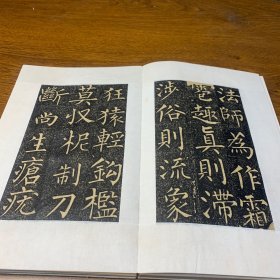 法師為作霜
雹趣真則滯
涉俗則流象
狂猿輕鉤檻
莫収柅制刀
斷尚生瘡疣